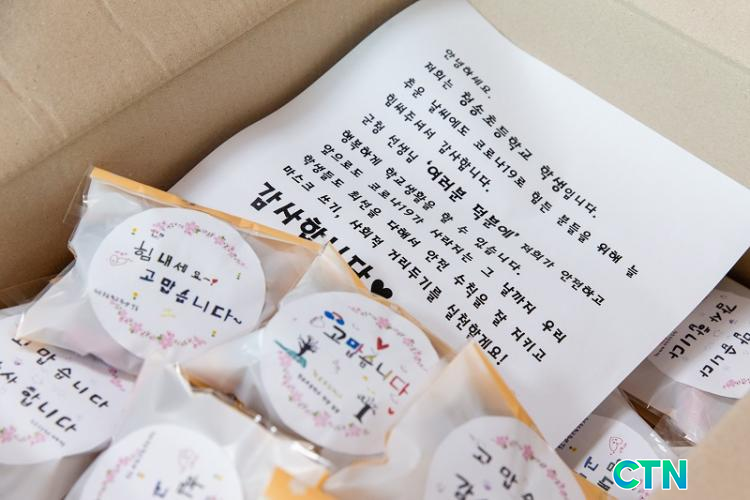 안녕하세요.
저희는 청송초등학교 학생입니다.
추운 날씨에도 코로나19로 힘든 분들을 위해 늘
힘써주셔서 감사합니다.
군청 선생님 '여러분 덕분에' 저희가 안전하고
행복하게 학교생활을 할 수 있습니다.
앞으로도 코로나19가 사라지는 그 날까지 우리
학생들도 최선을 다해서 안전 수칙을 잘 지키고
마스크 쓰기, 사회적 거리두기를 실천할게요!
감사합니다♥
힘내세요~
고맙습니다~
고맙습니다
고맙습니다
감사합니다
고맙
고맙습
감사
합니다
CTN